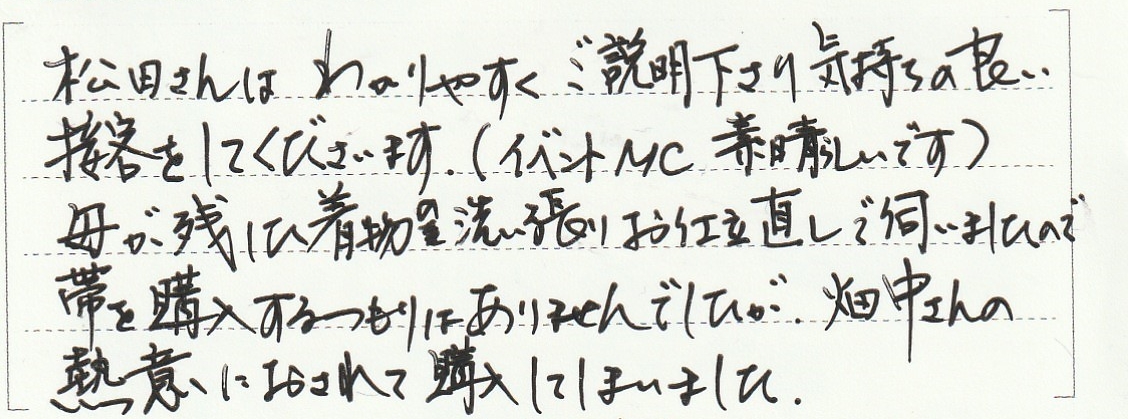 松田さんは わかりやすく ご説明下さり 気持ちの良い
接客をしてくださいます.(イベントMC 素晴らしいです)
母が残した着物の洗い張りお仕立直しで伺いましたので
帯を購入するつもりはありませんでしたが. 畑中さんの
熱意におされて購入してしまいました.